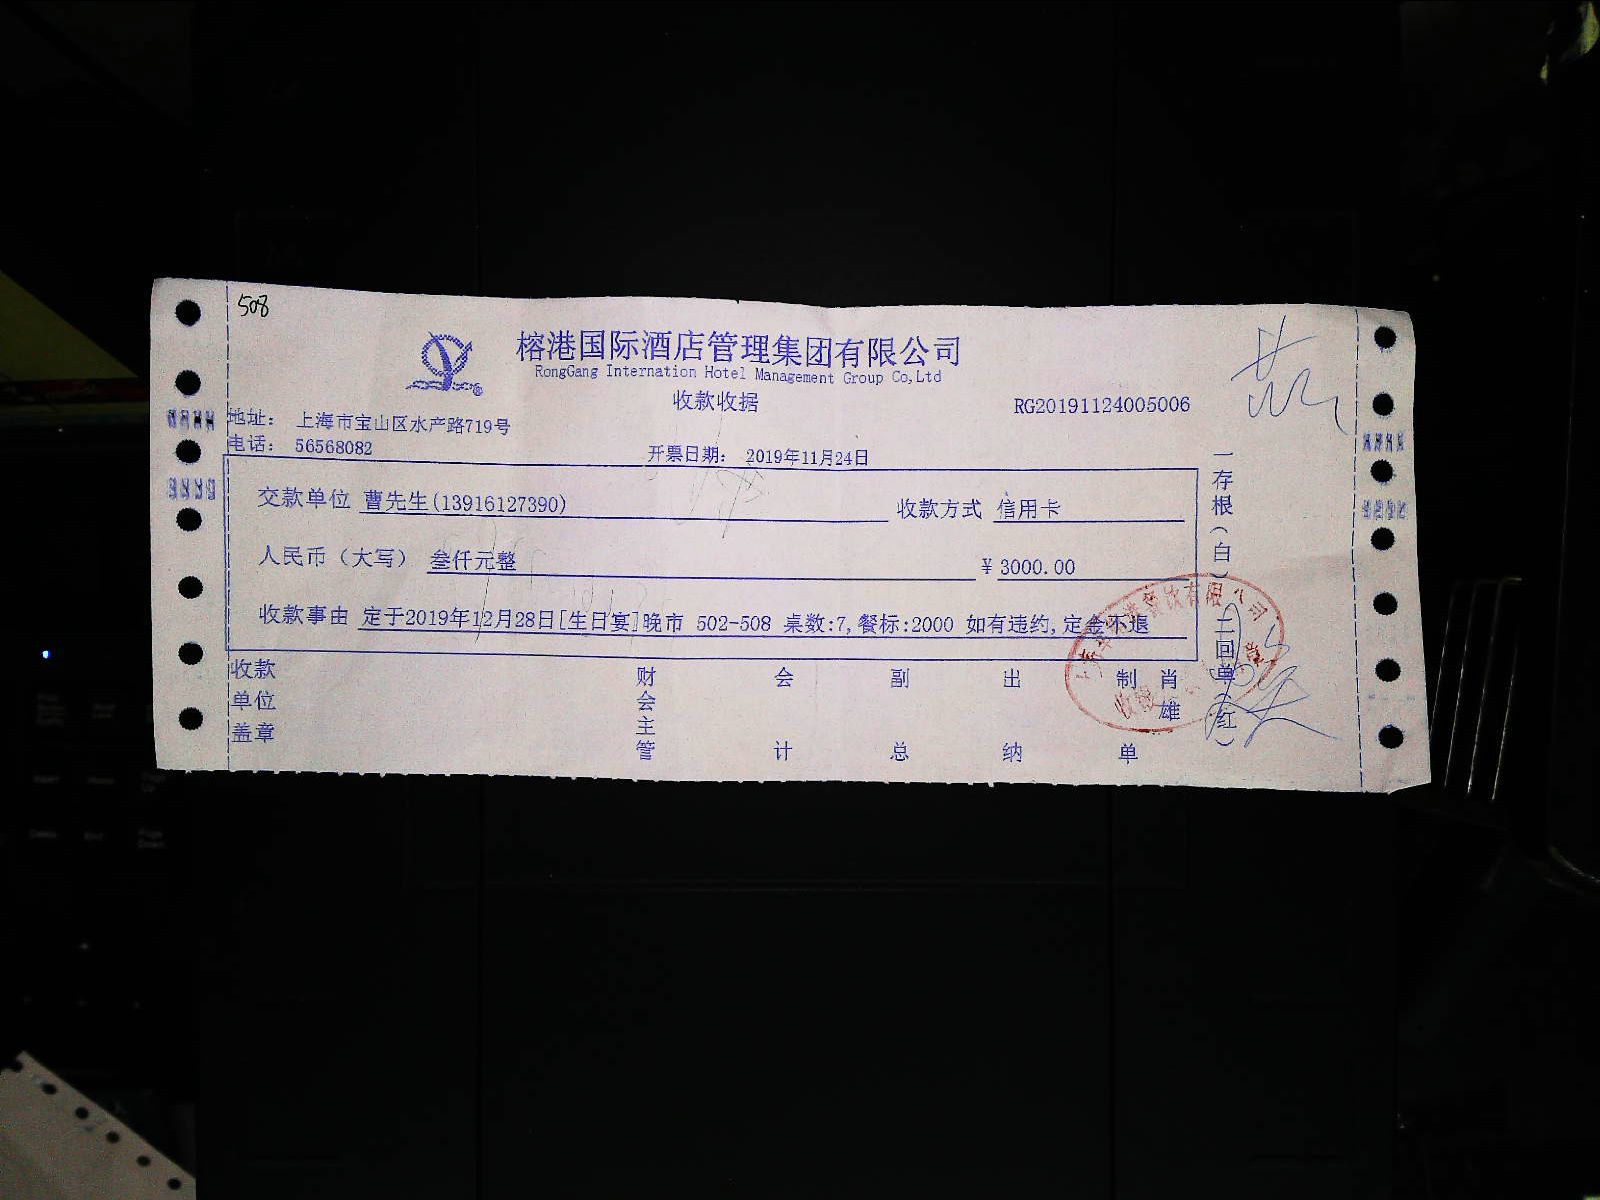 508
榕港国际酒店管理集团有限公司
RongGang Internation Hotel Management Group Co,Ltd
收款收据
RG20191124005006
地址： 上海市宝山区水产路719号
电话： 56568082
开票日期： 2019年11月24日
交款单位 曹先生(13916127390) 收款方式 信用卡
人民币（大写） 叁仟元整 ¥ 3000.00
收款事由 定于2019年12月28日[生日宴]晚市 502-508 桌数:7,餐标:2000 如有违约,定金不退
收款单位盖章 财会主管 会计 副总 出纳 制单 肖雄
一存根（白） 二回单（红）